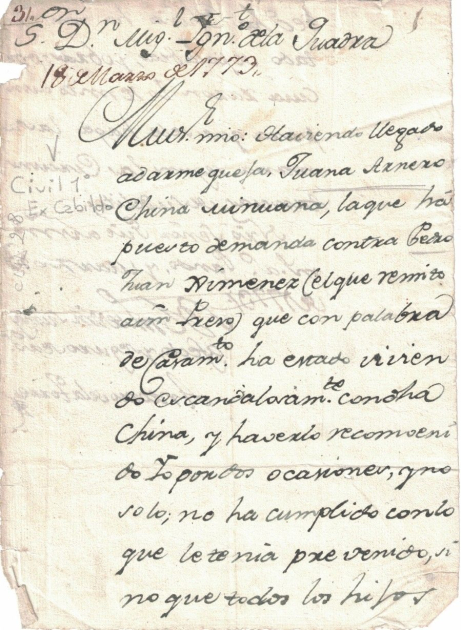 31.
S.r D.n Mig.l Ign.o de la Quadra
18 de Marzo de 1773.
Muy S.r mio: Haviendo llegado
adarme quejas, Juana Arnero
China minuana, la que há
puesto demanda contra Pedro
Juan Ximenez (el que remito
à Vm Preso) que con palabra
de Casam.to ha estado vivien
do escandalosam.te con dha
China, y haverlo reconveni
do Yo por dos ocasiones, y no
solo; no ha cumplido con lo
que le tenia prevenido, si
no que todos los hijos
Civil 1
Ex Cabildo